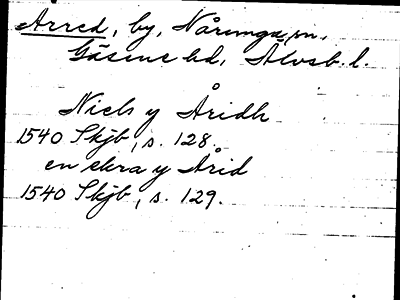 Arred, by, Nårunga sn,
Gäsene hd, Älvsb. l.
Niels y Åridh
1540 Skjb, s. 128.
en ekra y Årid
1540 Skjb, s. 129.